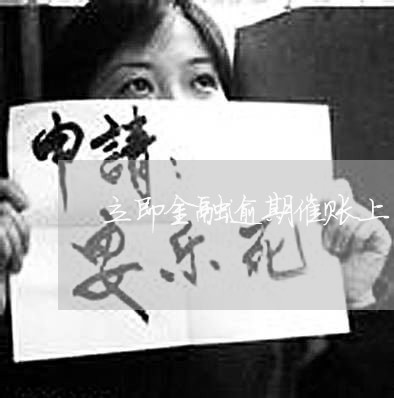 申請：
立即金融逾期催账上
安乐死